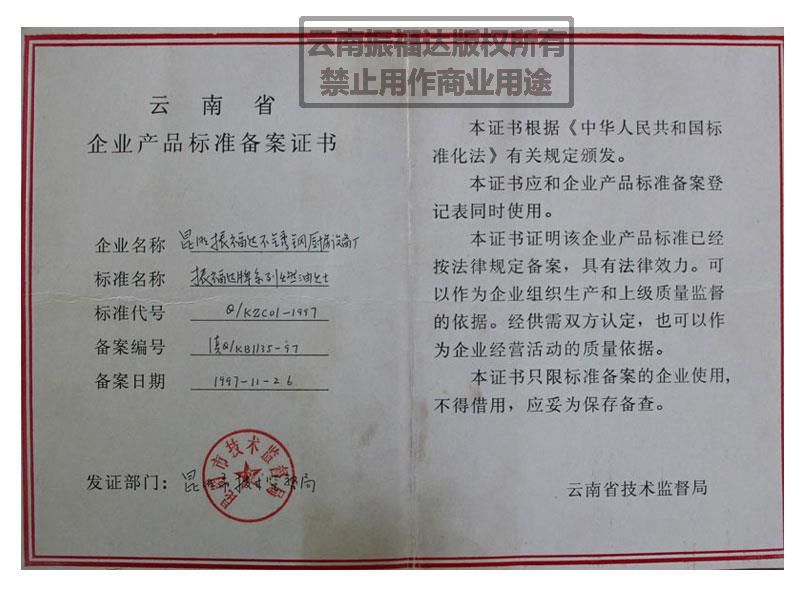 云南振福达版权所有
禁止用作商业用途
云南省
企业产品标准备案证书
企业名称 昆明振福达不锈钢厨房设备厂
标准名称 振福达牌系列燃油灶
标准代号 Q/KZC01-1997
备案编号 滇Q/KB1135-97
备案日期 1997-11-26
发证部门：昆明市技术监督局
昆明市技术监督局
本证书根据《中华人民共和国标
准化法》有关规定颁发。
本证书应和企业产品标准备案登
记表同时使用。
本证书证明该企业产品标准已经
按法律规定备案，具有法律效力。可
以作为企业组织生产和上级质量监督
的依据。经供需双方认定，也可以作
为企业经营活动的质量依据。
本证书只限标准备案的企业使用，
不得借用，应妥为保存备查。
云南省技术监督局